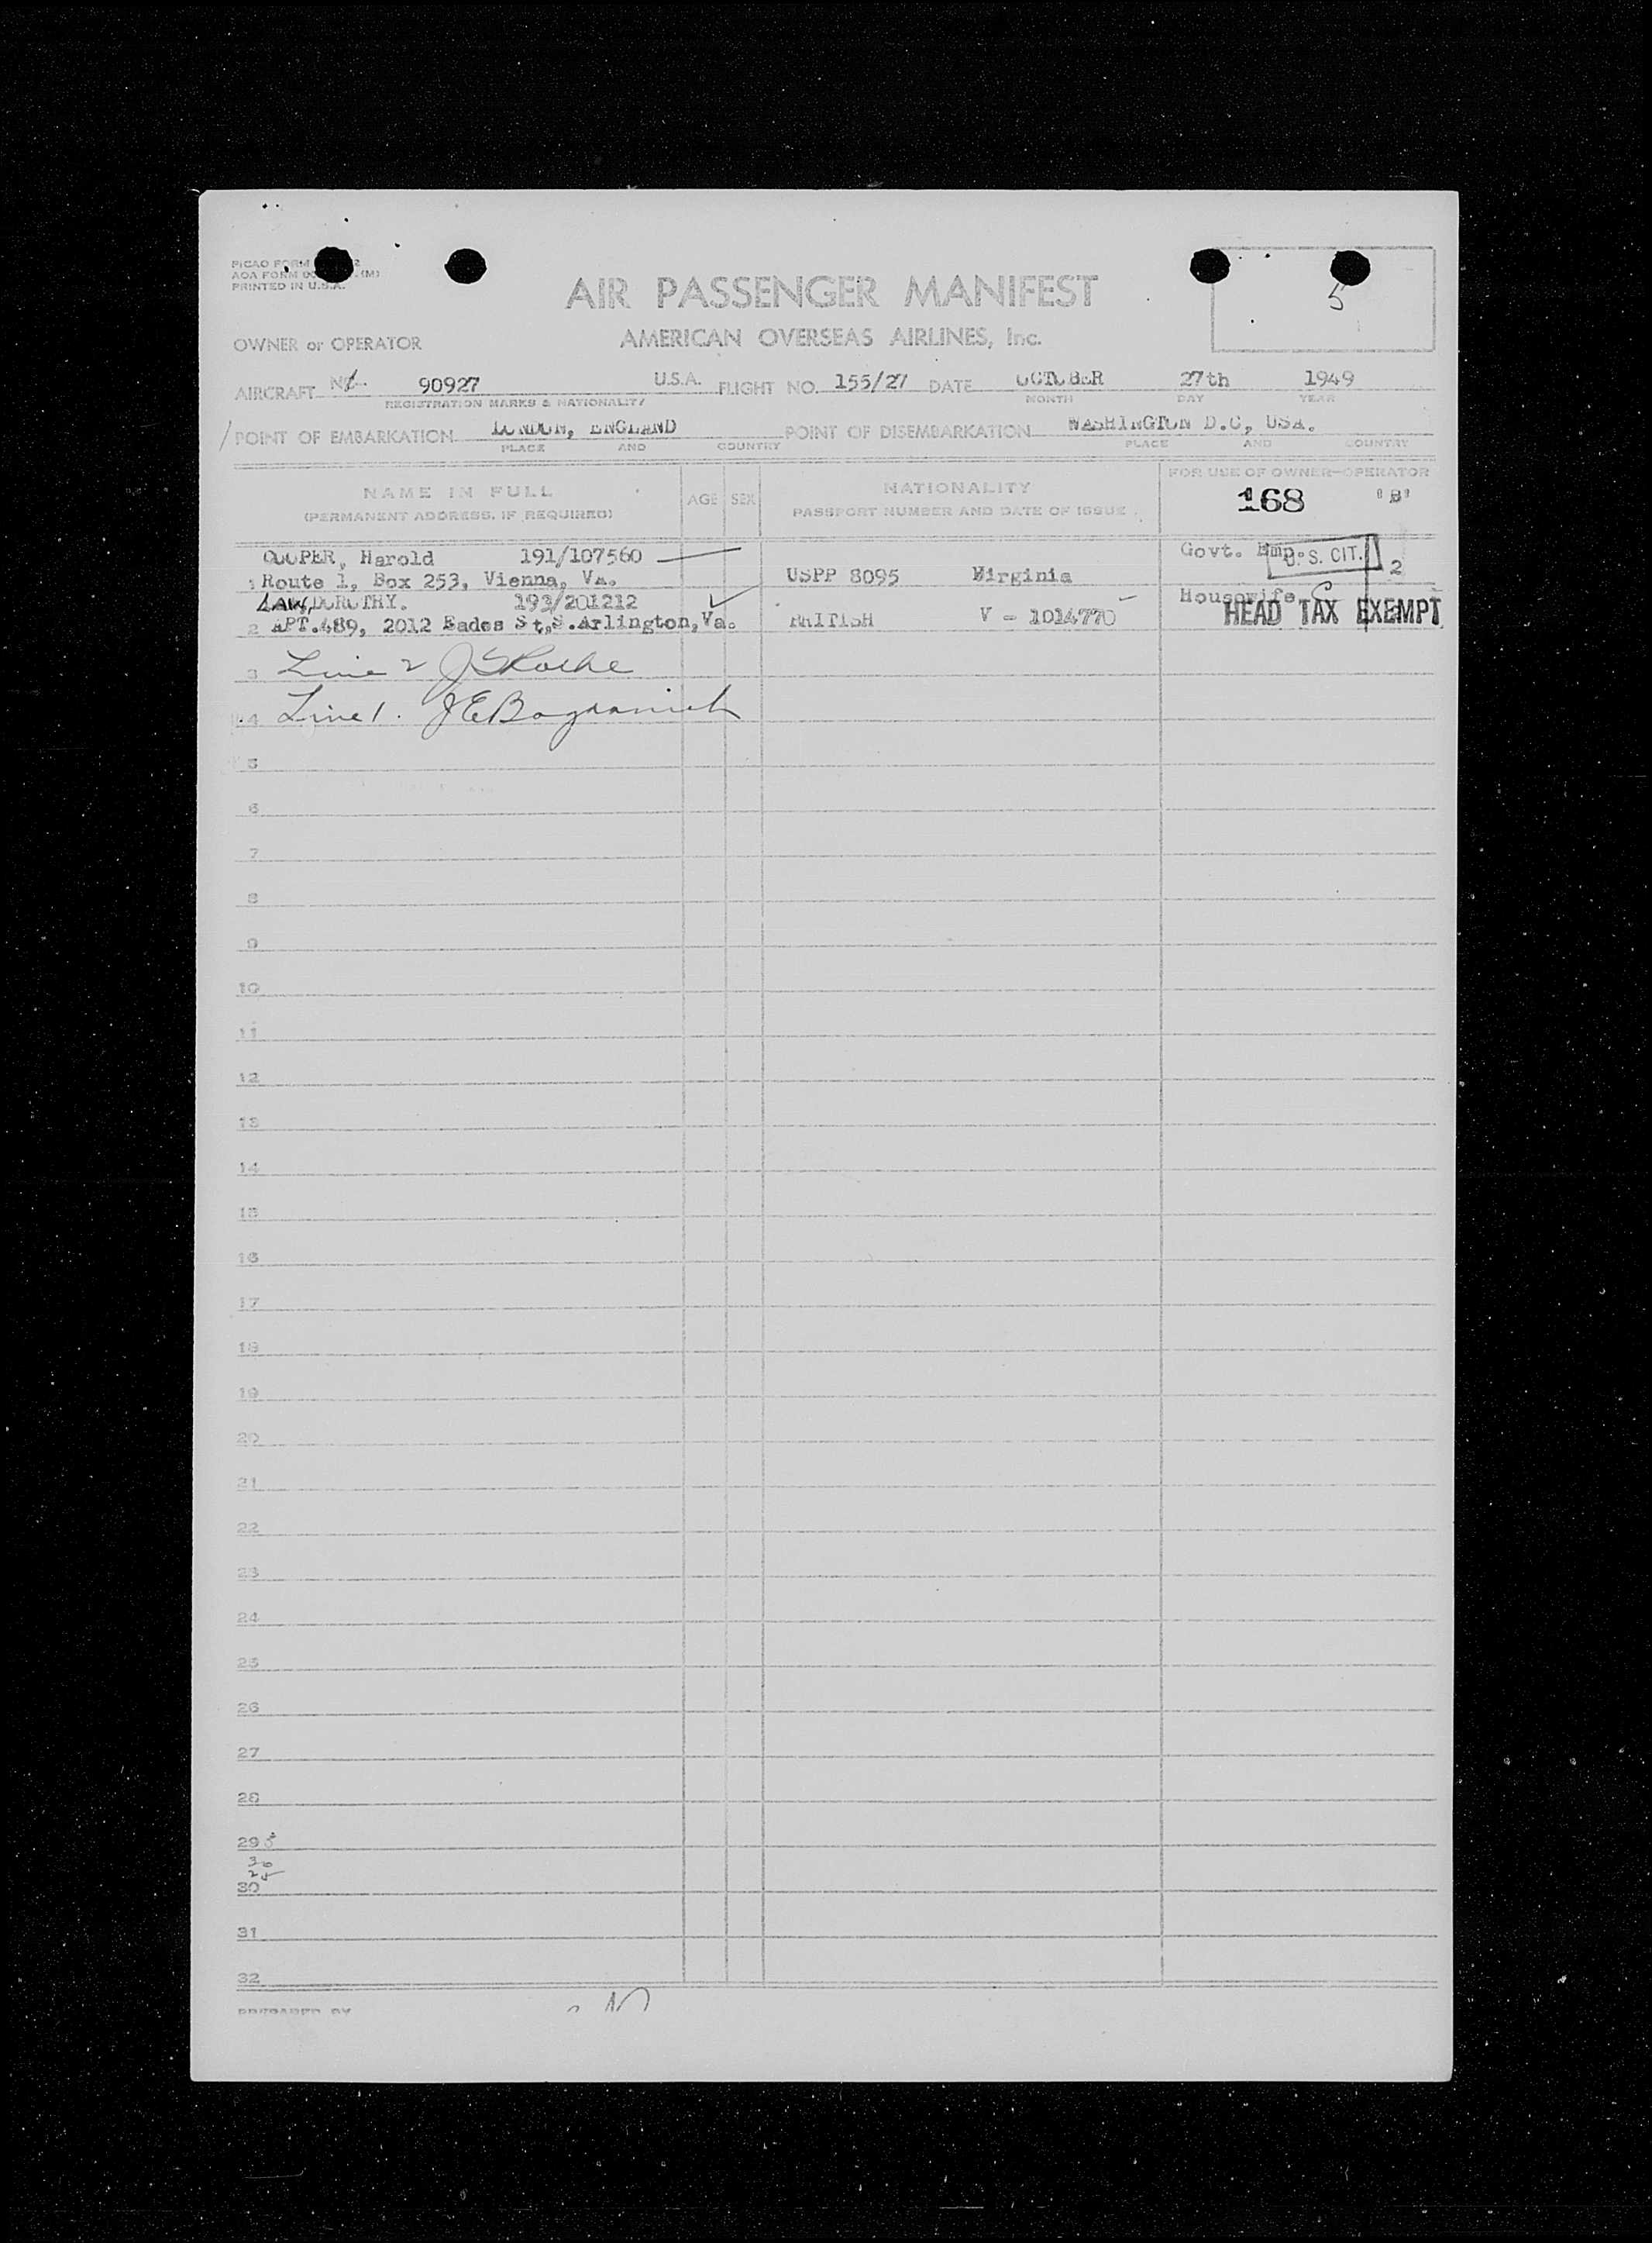 PICAO FORM
AOA FORM (M)
PRINTED IN U.S.A.
5
AIR PASSENGER MANIFEST
OWNER or OPERATOR AMERICAN OVERSEAS AIRLINES, Inc.
AIRCRAFT 90927 U.S.A. FLIGHT NO. 155/27 DATE OCTOBER 27th 1949
REGISTRATION MARKS & NATIONALITY MONTH DAY YEAR
POINT OF EMBARKATION LONDON, ENGLAND POINT OF DISEMBARKATION WASHINGTON D.C, USA.
PLACE AND COUNTRY PLACE AND COUNTRY
NAME IN FULL AGE SEX NATIONALITY FOR USE OF OWNER-OPERATOR
(PERMANENT ADDRESS, IF REQUIRED) PASSPORT NUMBER AND DATE OF ISSUE 168 'B'
COOPER, Harold 191/107560 Govt. Emp. U.S. CIT. 2
1 Route 1, Box 253, Vienna, Va. USPP 8095 Virginia
LAW, DOROTHY. 193/201212 Housewife
2 APT.489, 2012 Eades St,S.Arlington,Va. BRITISH V - 1014770 HEAD TAX EXEMPT
3 Line 2 J S Roche
4 Line 1. J E Bogdanich
5
6
7
8
9
10
11
12
13
14
15
16
17
18
19
20
21
22
23
24
25
26
27
28
29
30
31
32
PREPARED BY